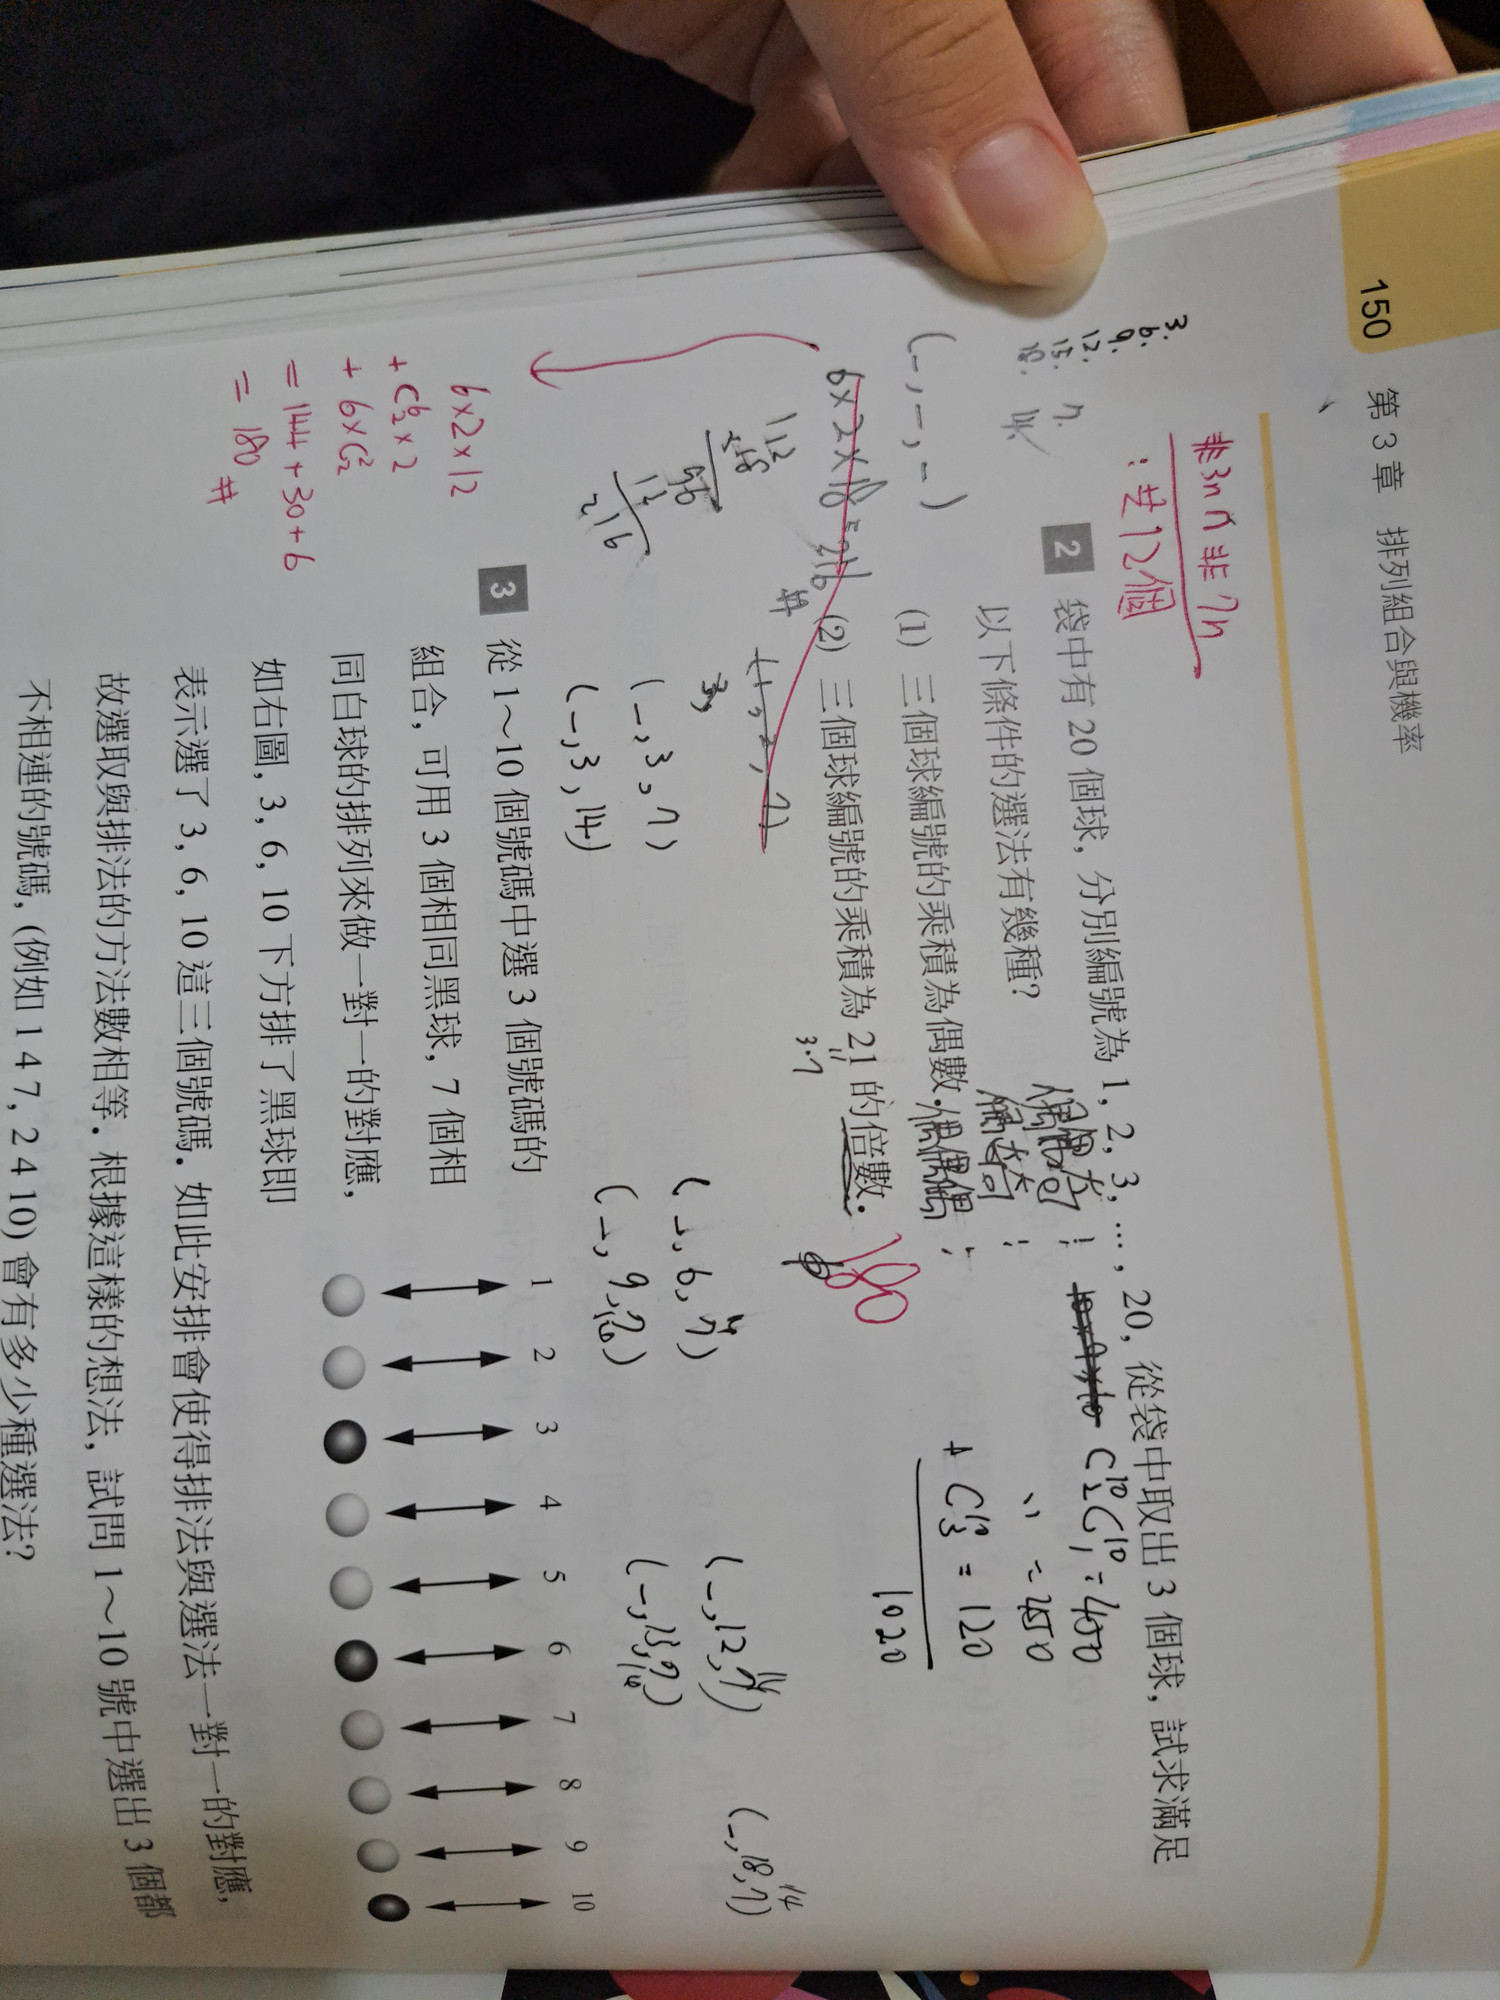 150 第 3 章 排列組合與機率
非3n∩非7n
：共12個
3.
6.
9.
12.
15.
18.
7.
14.
2 袋中有 20 個球，分別編號為 1, 2, 3, …, 20，從袋中取出 3 個球，試求滿足
以下條件的選法有幾種？
偶偶奇： C¹⁰₂C¹⁰₁ = 450
偶奇奇： 〃 = 450
偶偶偶： + C¹⁰₃ = 120
1020
(1) 三個球編號的乘積為偶數．
(2) 三個球編號的乘積為 21 的倍數．
3·7
180
(–, –, –)
6×2×18=216 #
(1, 2, 7)
3,
(–, 3, 7)
(–, 3, 14)
(–, 12, 7) 14
(–, 18, 7) 14
6×2×12
+ C⁶₂×2
+ 6×C²₂
= 144+30+6
= 180 #
3 從 1～10 個號碼中選 3 個號碼的
組合，可用 3 個相同黑球，7 個相
同白球的排列來做一對一的對應，
如右圖，3, 6, 10 下方排了黑球即
表示選了 3, 6, 10 這三個號碼．如此安排會使得排法與選法一對一的對應，
故選取與排法的方法數相等．根據這樣的想法，試問 1～10 號中選出 3 個都
不相連的號碼，(例如 1 4 7, 2 4 10) 會有多少種選法？
1 2 3 4 5 6 7 8 9 10